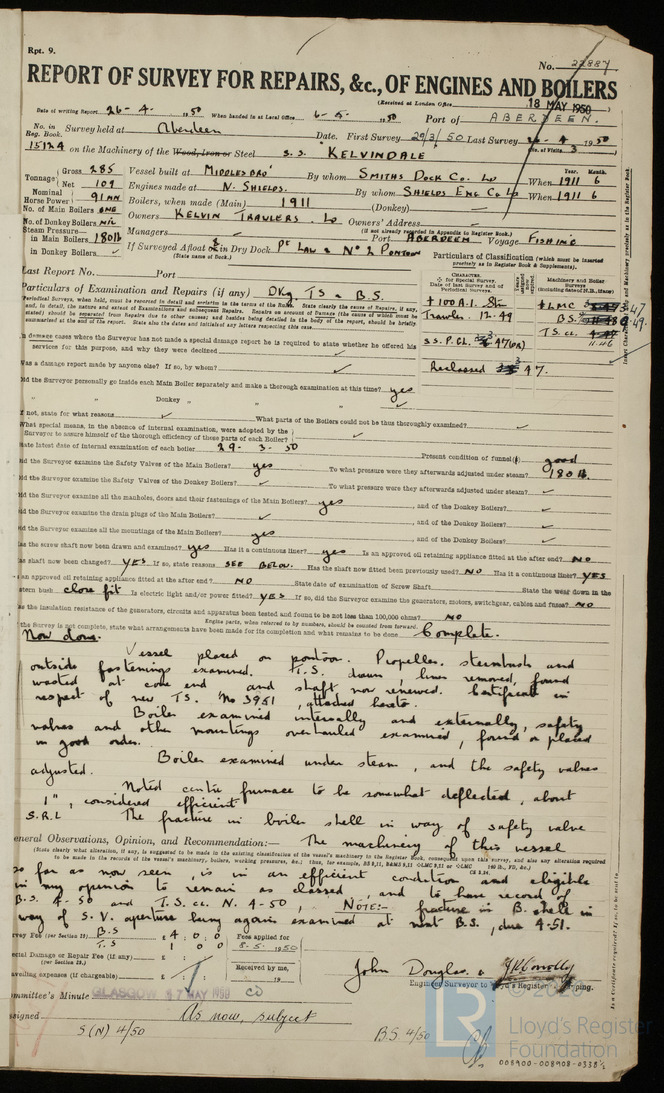 Rpt. 9.
No. 22887
REPORT OF SURVEY FOR REPAIRS, &c., OF ENGINES AND BOILERS
(Received at London Office 18 MAY 1950
Date of writing Report 26-4-1950 When handed in at Local Office 6-5-1950 Port of ABERDEEN.
No. in Reg. Book. Survey held at Aberdeen Date. First Survey 29/3/50 Last Survey 26-4-1950
15124 on the Machinery of the Wood, Iron or Steel S.S. KELVINDALE No. of Visits 3
Tonnage Gross 285 Vessel built at MIDDLESBRO' By whom SMITHS DOCK CO. LD When 1911 6
Net 109
Nominal Horse Power 91 NHP Engines made at N. SHIELDS. By whom SHIELDS ENG CO LD When 1911 6
Boilers, when made (Main) 1911 (Donkey)
No. of Main Boilers ONE Owners KELVIN TRAWLERS. LD Owners' Address
(if not already recorded in Appendix to Register Book.)
No. of Donkey Boilers NIL Managers Port ABERDEEN Voyage FISHING
Steam Pressure in Main Boilers 180 lb If Surveyed Afloat or in Dry Dock Pt LAW & No 2 PONTOON
(State name of Dock.)
in Donkey Boilers
Particulars of Classification (which must be inserted precisely as in Register Book & Supplements).
Last Report No. Port
CHARACTER. for Special Survey, Date of last Survey and of Periodical Surveys.
Machinery and Boiler Surveys (including dates of N.B., &c.)
Particulars of Examination and Repairs (if any) Dkg TS & B.S.
+100A1. Stm Trawler. 12.49
S.S. P. GL. 3.47
Reclassed 3.47.
+LMC 3.47
B.S. 4.49.
TS. CL. 11.46
In damage cases where the Surveyor has not made a special damage report he is required to state whether he offered his services for this purpose, and why they were declined
Was a damage report made by anyone else? If so, by whom?
Did the Surveyor personally go inside each Main Boiler separately and make a thorough examination at this time? yes
" " Donkey " " " "
If not, state for what reasons What parts of the Boilers could not be thus thoroughly examined?
What special means, in the absence of internal examination, were adopted by the Surveyor to assure himself of the thorough efficiency of those parts of each Boiler?
State latest date of internal examination of each boiler 29.3.50 Present condition of funnel(s) good
Did the Surveyor examine the Safety Valves of the Main Boilers? yes To what pressure were they afterwards adjusted under steam? 180 lb.
Did the Surveyor examine the Safety Valves of the Donkey Boilers? To what pressure were they afterwards adjusted under steam?
Did the Surveyor examine all the manholes, doors and their fastenings of the Main Boilers? yes, and of the Donkey Boilers?
Did the Surveyor examine the drain plugs of the Main Boilers?, and of the Donkey Boilers?
Did the Surveyor examine all the mountings of the Main Boilers? yes, and of the Donkey Boilers?
Has the screw shaft now been drawn and examined? yes Has it a continuous liner? yes Is an approved oil retaining appliance fitted at the after end? NO
Has shaft now been changed? YES If so, state reasons SEE BELOW. Has the shaft now fitted been previously used? NO Has it a continuous liner? YES
Is an approved oil retaining appliance fitted at the after end? NO State date of examination of Screw Shaft State the wear down in the
stern bush close fit Is electric light and/or power fitted? YES If so, did the Surveyor examine the generators, motors, switchgear, cables and fuses? NO
Has the insulation resistance of the generators, circuits and apparatus been tested and found to be not less than 100,000 ohms? NO
Engine parts, when referred to by numbers, should be counted from forward.
If the Survey is not complete, state what arrangements have been made for its completion and what remains to be done Complete.
Now done. Vessel placed on pontoon. Propeller, sternbush and
outside fastenings examined. T.S. drawn, liner removed, found
wasted at cone end and shaft now renewed. Certificate in
respect of new TS. No 3951, attached hereto.
Boiler examined internally and externally, safety
valves and other mountings overhauled examined, found or placed
in good order.
Boiler examined under steam, and the safety valves
adjusted.
Noted centre furnace to be somewhat deflected, about
1", considered efficient
S.R.L The fracture in boiler shell in way of safety valve
General Observations, Opinion, and Recommendation:— The machinery of this vessel
so far as now seen, is in an efficient condition and eligible
in my opinion to remain as classed, and to have record of
B.S. 4-50 and T.S. CL. N. 4-50, NOTE:- fracture in B. shell in
way of S.V. aperture being again examined at next B.S., due 4-51.
Survey Fee (per Section 29) B.S £ 4 : 0 : 0 Fees applied for
T.S 1 0 0 8.5.1950
Special Damage or Repair Fee (if any) £ : :
(per Section 29.)
Received by me,
Travelling expenses (if chargeable) £ : : 19
John Douglas & J.R. Conolly
Engineer Surveyor to Lloyd's Register of Shipping.
Committee's Minute GLASGOW 17 MAY 1950
Assigned As now, subject
S(N) 4/50 BS 4/50
© 2020
LR Lloyd's Register Foundation
008900-008908-0338 1/2